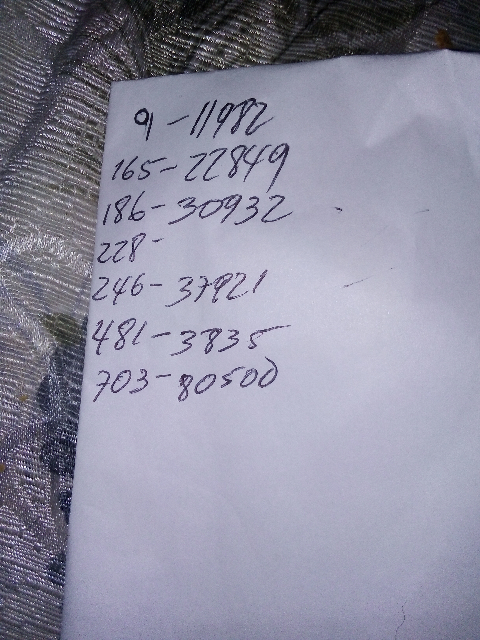 91-11982
165-22849
186-30932
228-
246-37921
481-3835
703-80500